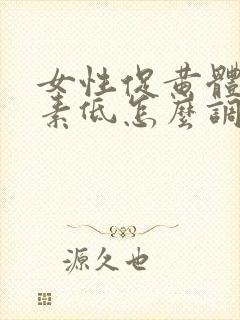 女性促黄體
素低怎麼調
源久也